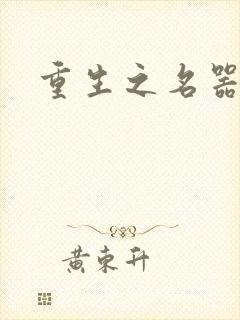 重生之名器
黄东升